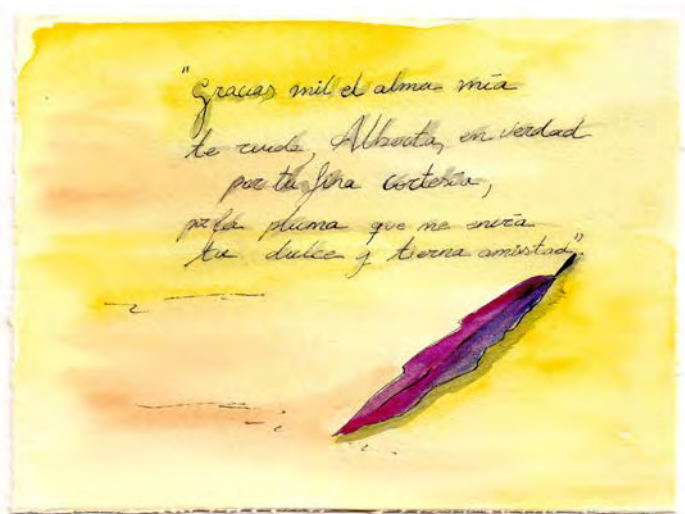 "Gracias mil el alma mía
te rinde, Alberta, en verdad
por tu fina cortesía,
por la pluma que me envía
tu dulce y tierna amistad".